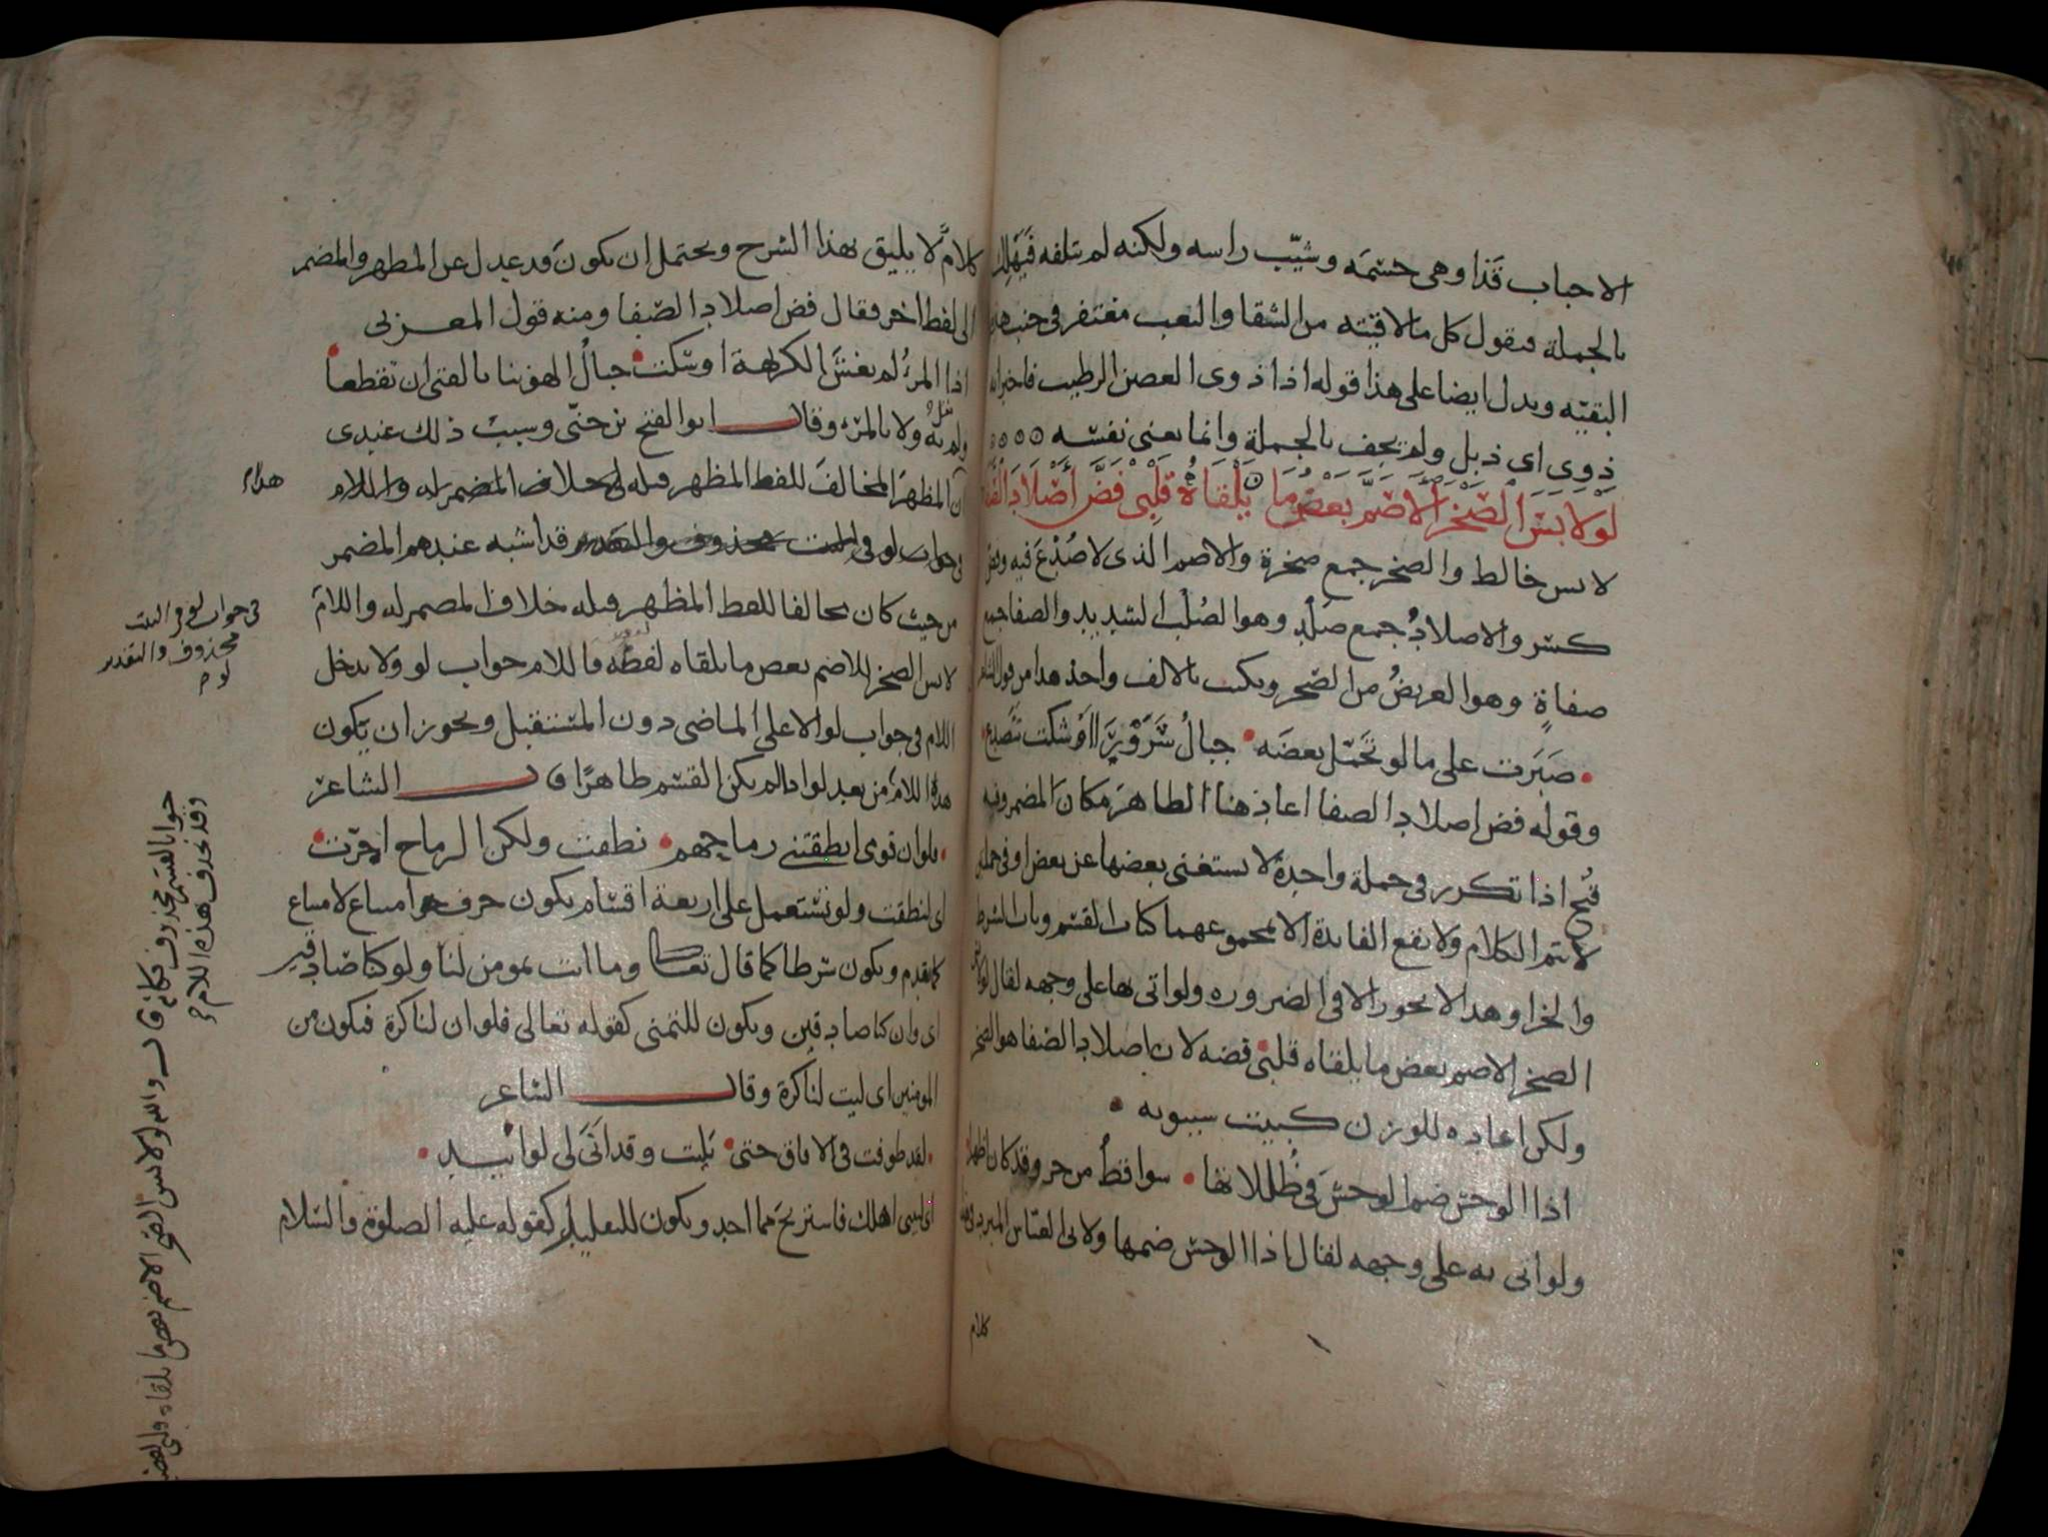 الاحباب قذا وهى جسمه وشيّب راسه ولكنه لم يتلفه فيهلك
بالجملة فيقول كل ما لاقيته من الشقا والتعب مغتفر فى جنب هذه
البقيّه ويدل ايضا على هذا قوله اذا ذوى الغصن الرطيب فاخبر انه
ذوى اى ذبل ولم يجف بالجملة وانما يعنى نفسه
لَوْ لَابَسَ الصَّخْرَ الاَصَمَّ بَعْضُ مَا يَلْقَاهُ قَلْبِى فَضَّ أَصْلَادَ الصَّفَا
لابس خالط والصخر جمع صخرة والاصم الذى لا صَدْعَ فيه وفض
كسر والاصلادُ جمع صلْدٍ وهو الصُلْب الشديد والصفا جمع
صفاةٍ وهو العريضُ من الصخر ويكتب بالالف واخذ هذا من قول الشاعر
صَبَرت على ما لو تحَمّل بعضَه جبالُ شَرَوْرَى اوشكت تتصدع
وقوله فض اصلاد الصفا اعاد هنا الظاهرَ مكان المضمر وفيه
قُبح اذا تكرر فى جملة واحدة لا يستغنى بعضها عن بعض او فى جملتين
لا يتم الكلام ولا تقع الفايدة الا بمجموعهما كباب القسم وباب الشرط
والجزا وهذا لا يجوز الا فى الضروره ولو اتى بها على وجهه لقال لو لابس
الصخر الاصم بعض ما يلقاه قلبى فضه لان اصلاد الصفا هو الصخر
ولكن اعاده للوزن كبيت سيبويه
اذا الوحش ضم الوحشَ فى ظُللاتها سواقطُ من حر وقد كان اظهرا
ولو اتى به على وجهه لقال اذا الوحش ضمها ولابى العباس المبرد فى هذا
كلام
كلامٌ لا يليق بهذا الشرح ويحتمل ان يكون قد عدل عن المظهر والمضمر
الى لفظ اخر فقال فض اصلاد الصفا ومنه قول المعرى
اذا المرءُ لم يغشَ الكريهة اوشكت حبالُ الهوينا بالفتى ان تقطعا
ولم يقل به ولا بالمرء وقال ابو الفتح بن جنّى وسبب ذلك عندى
ان المظهر المخالفَ للفظ المظهر قبله خلاف المضمر له واللام
فى جواب لو فى البيت محذوف والتقدير قد اشبه عندهم المضمر
من حيث كان مخالفا للفظ المظهر قبله خلاف المضمر له واللامَ
لابس الصخر الاصم بعض ما يلقاه لفضه فاللام جواب لو ولا يدخل
اللام فى جواب لو الا على الماضى دون المستقبل ويجوز ان يكون
هذه اللام من بعد لو اذا لم يكن القسم ظاهرًا قال الشاعر
فلو ان قومى انطقتنى رماحهم نطقت ولكن الرماح اجرّت
اى لنطقت ولو تستعمل على اربعة اقسام يكون حرف امتناع لامتناع
كما تقدم ويكون شرطا كما قال تعالى وما انت بمومن لنا ولو كنا صادقين
اى وان كنا صادقين ويكون للتمنى كقوله تعالى فلو ان لنا كرة فنكون من
المومنين اى ليت لنا كرة وقال الشاعر
لقد طوفت فى الافاق حتى بَليت وقد انَى لى لو ابيد
اى ليتنى اهلك فاستريحَ مما اجد ويكون للتعليل كقوله عليه الصلوة والسّلام
فى جواب لو فى البيت
محذوف والتقدير
لو
وقد تحذف هذه اللام
جوابا لقسم محذوف فكانه قال والله لو لابس الصخر الاصم بعض ما يلقاه قلبى لفض